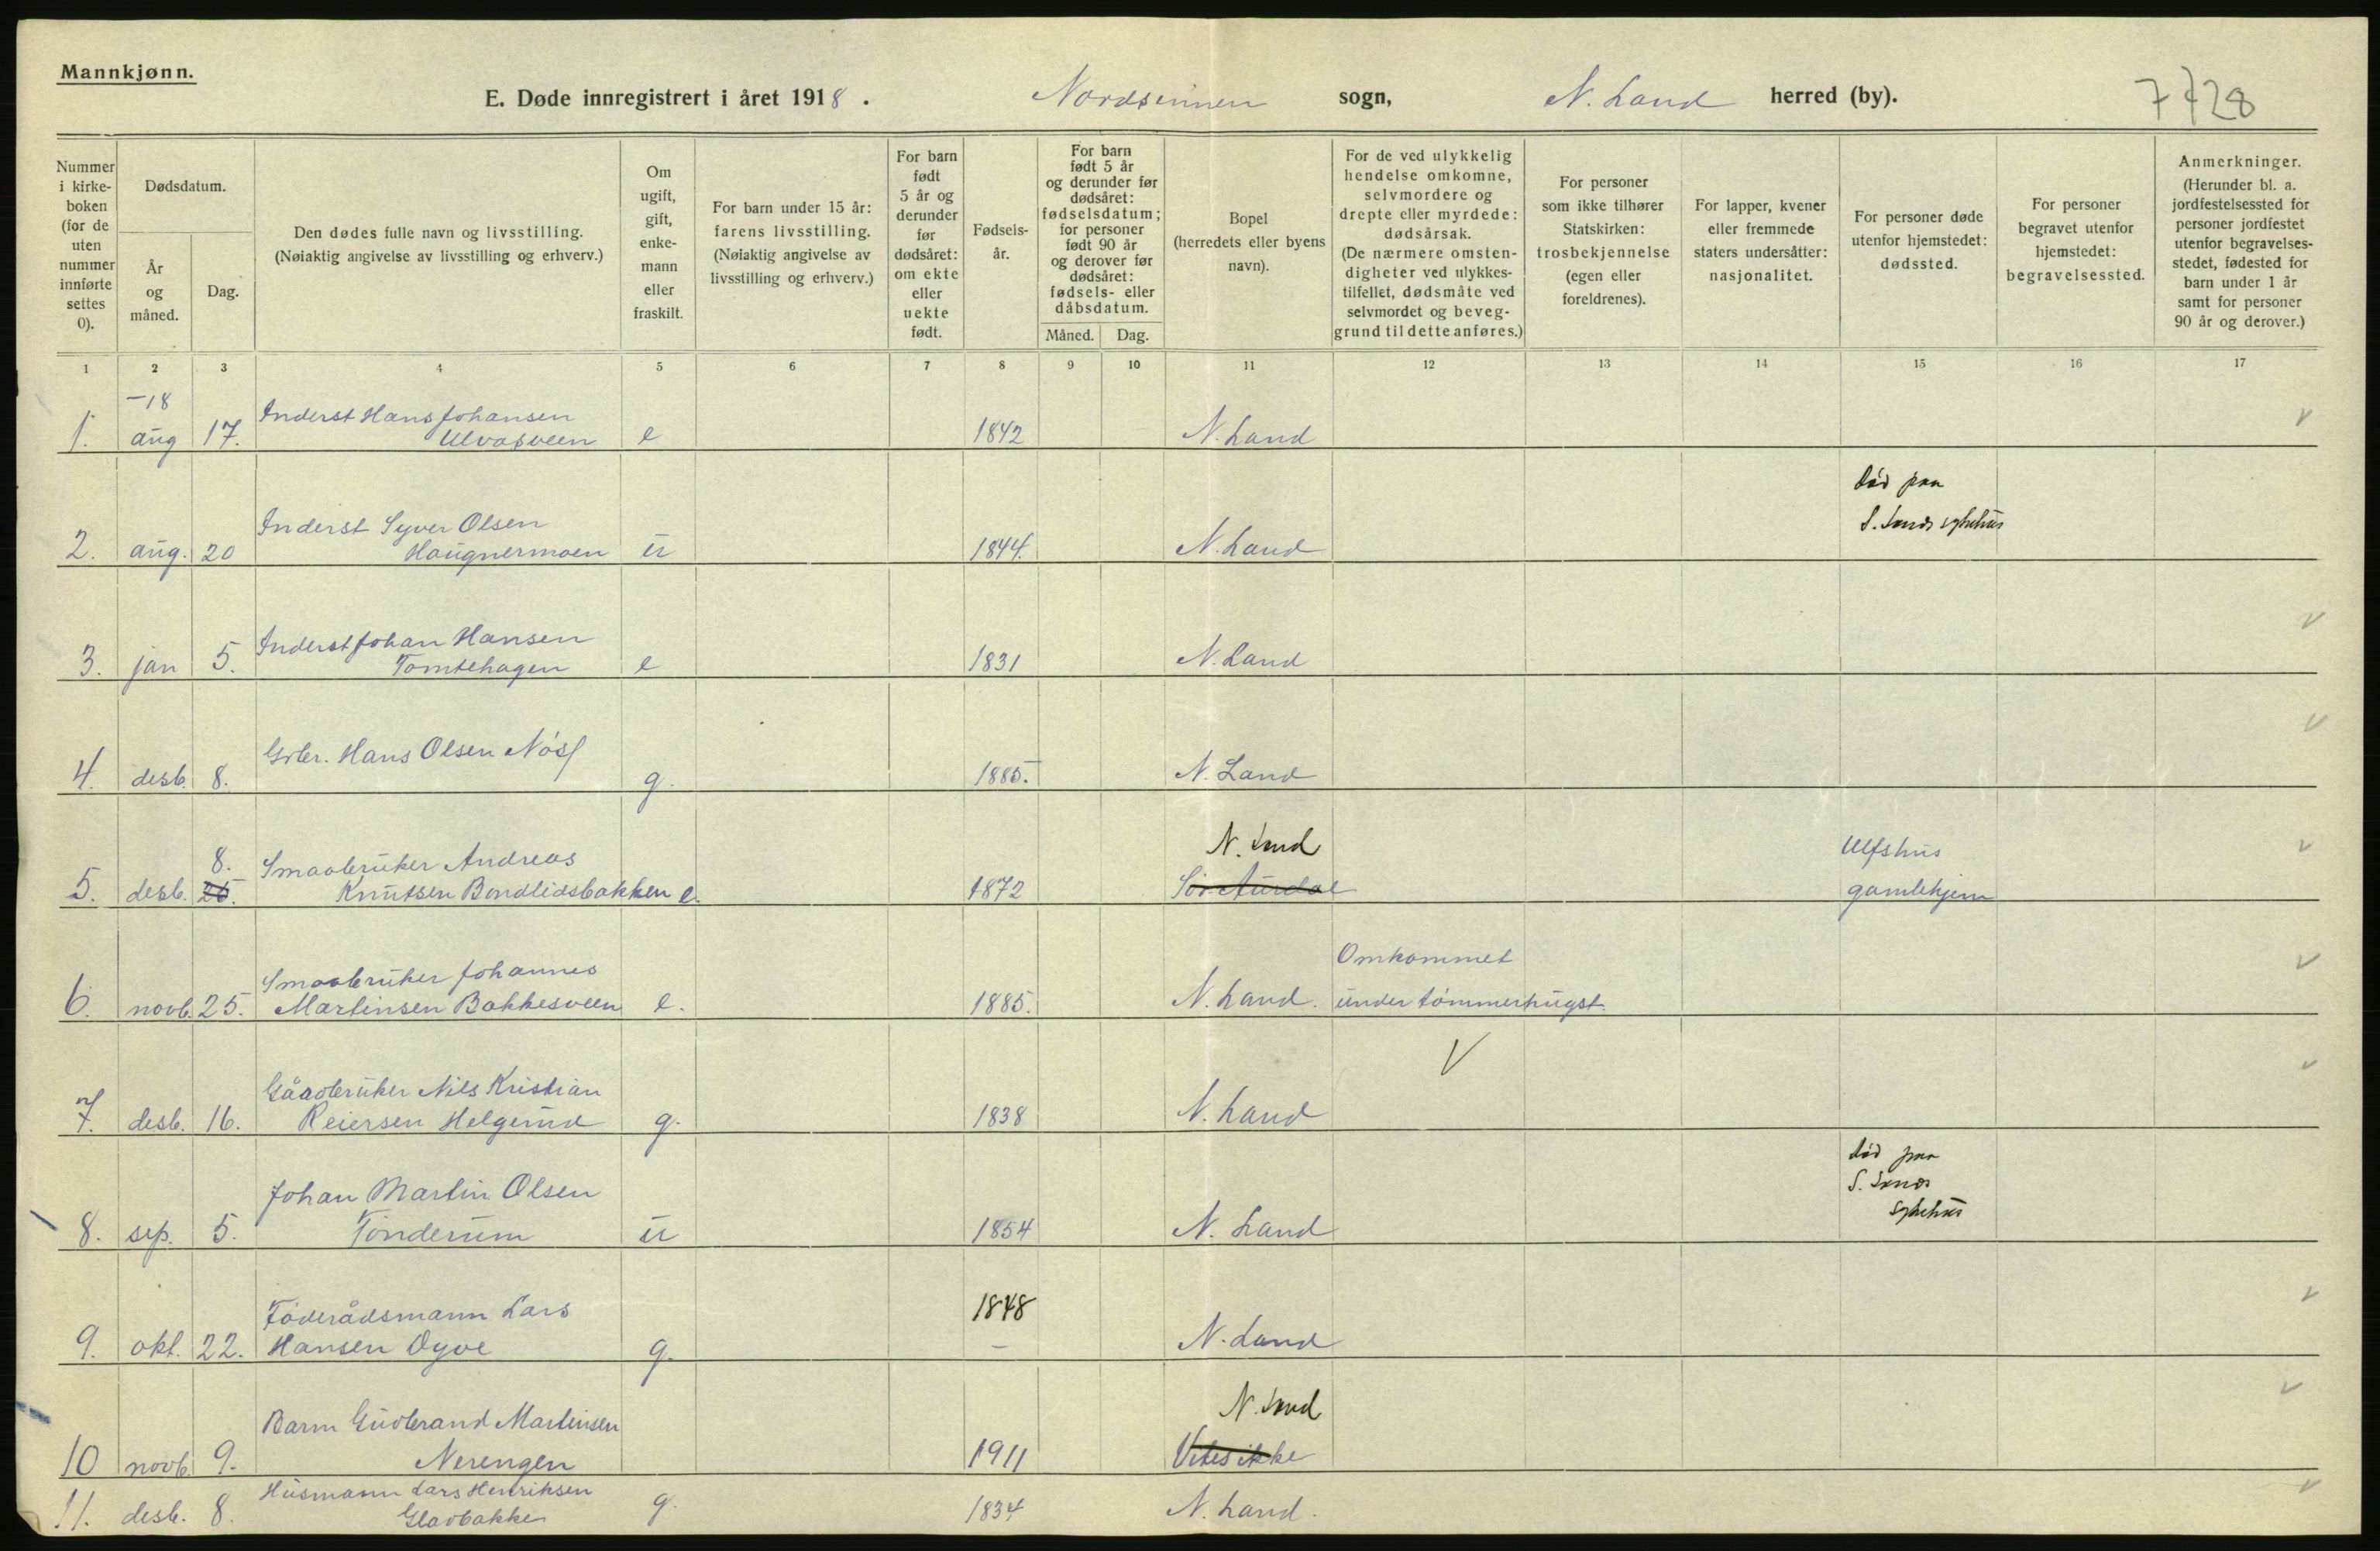 Mannkjønn.
E. Døde innregistrert i året 1918. Nordsinnen sogn, N. Land herred (by). 7 28
Nummer i kirkeboken (for de uten nummer innførte settes 0).
Dødsdatum.
År og måned.
Dag.
Den dødes fulle navn og livsstilling.
(Nøiaktig angivelse av livsstilling og erhverv.)
Om ugift, gift, enkemann eller fraskilt.
For barn under 15 år: farens livsstilling.
(Nøiaktig angivelse av livsstilling og erhverv.)
For barn født 5 år og derunder før dødsåret: om ekte eller uekte født.
Fødselsår.
For barn født 5 år og derunder før dødsåret: fødselsdatum; for personer født 90 år og derover før dødsåret: fødsels- eller dåbsdatum.
Måned. Dag.
Bopel (herredets eller byens navn).
For de ved ulykkelig hendelse omkomne, selvmordere og drepte eller myrdede: dødsårsak.
(De nærmere omstendigheter ved ulykkestilfellet, dødsmåte ved selvmordet og beveggrund til dette anføres.)
For personer som ikke tilhører Statskirken: trosbekjennelse (egen eller foreldrenes).
For lapper, kvener eller fremmede staters undersåtter: nasjonalitet.
For personer døde utenfor hjemstedet: dødssted.
For personer begravet utenfor hjemstedet: begravelsessted.
Anmerkninger.
(Herunder bl. a. jordfestelsessted for personer jordfestet utenfor begravelsesstedet, fødested for barn under 1 år samt for personer 90 år og derover.)
1 2 3 4 5 6 7 8 9 10 11 12 13 14 15 16 17
-18
Inderst Hans Johansen
1. aug 17. Ulvasveen e 1842 N. Land
død paa
Inderst Syver Olsen S. Lands sykehus
2. aug. 20 Haugnermoen u 1844. N. Land
Inderst Johan Hansen
3. jan 5. Tomtehagen e 1831 N. Land
Gbr. Hans Olsen Nøss
4. desb. 8. g. 1885. N. Land
8. Smaabruker Andreas N. Land Ulfshus
5. desb. 25. Knutsen Bondlidsbakken e. 1872 Sør Aurdal gamlehjem
Smaabruker Johannes Omkommet
6. novb. 25. Martinsen Bakkesveen e. 1885. N. Land. under tømmerhugst.
Gåardbruker Nils Kristian
7. desb. 16. Reiersen Helgerud g. 1838 N. Land
død paa
Johan Martin Olsen S. Lands
sykehus
8. sep. 5. Tønderum u 1854 N. Land
Føderådsmann Lars 1848
9. okt. 22. Hansen Ogve g. – N. Land
Barm Gudbrand Martinsen N. Land
10 novb. 9. Nerengen 1911 Vites ikke
Husmann Lars Henriksen
11. desb. 8. Gladbakke g. 1834 N. Land.